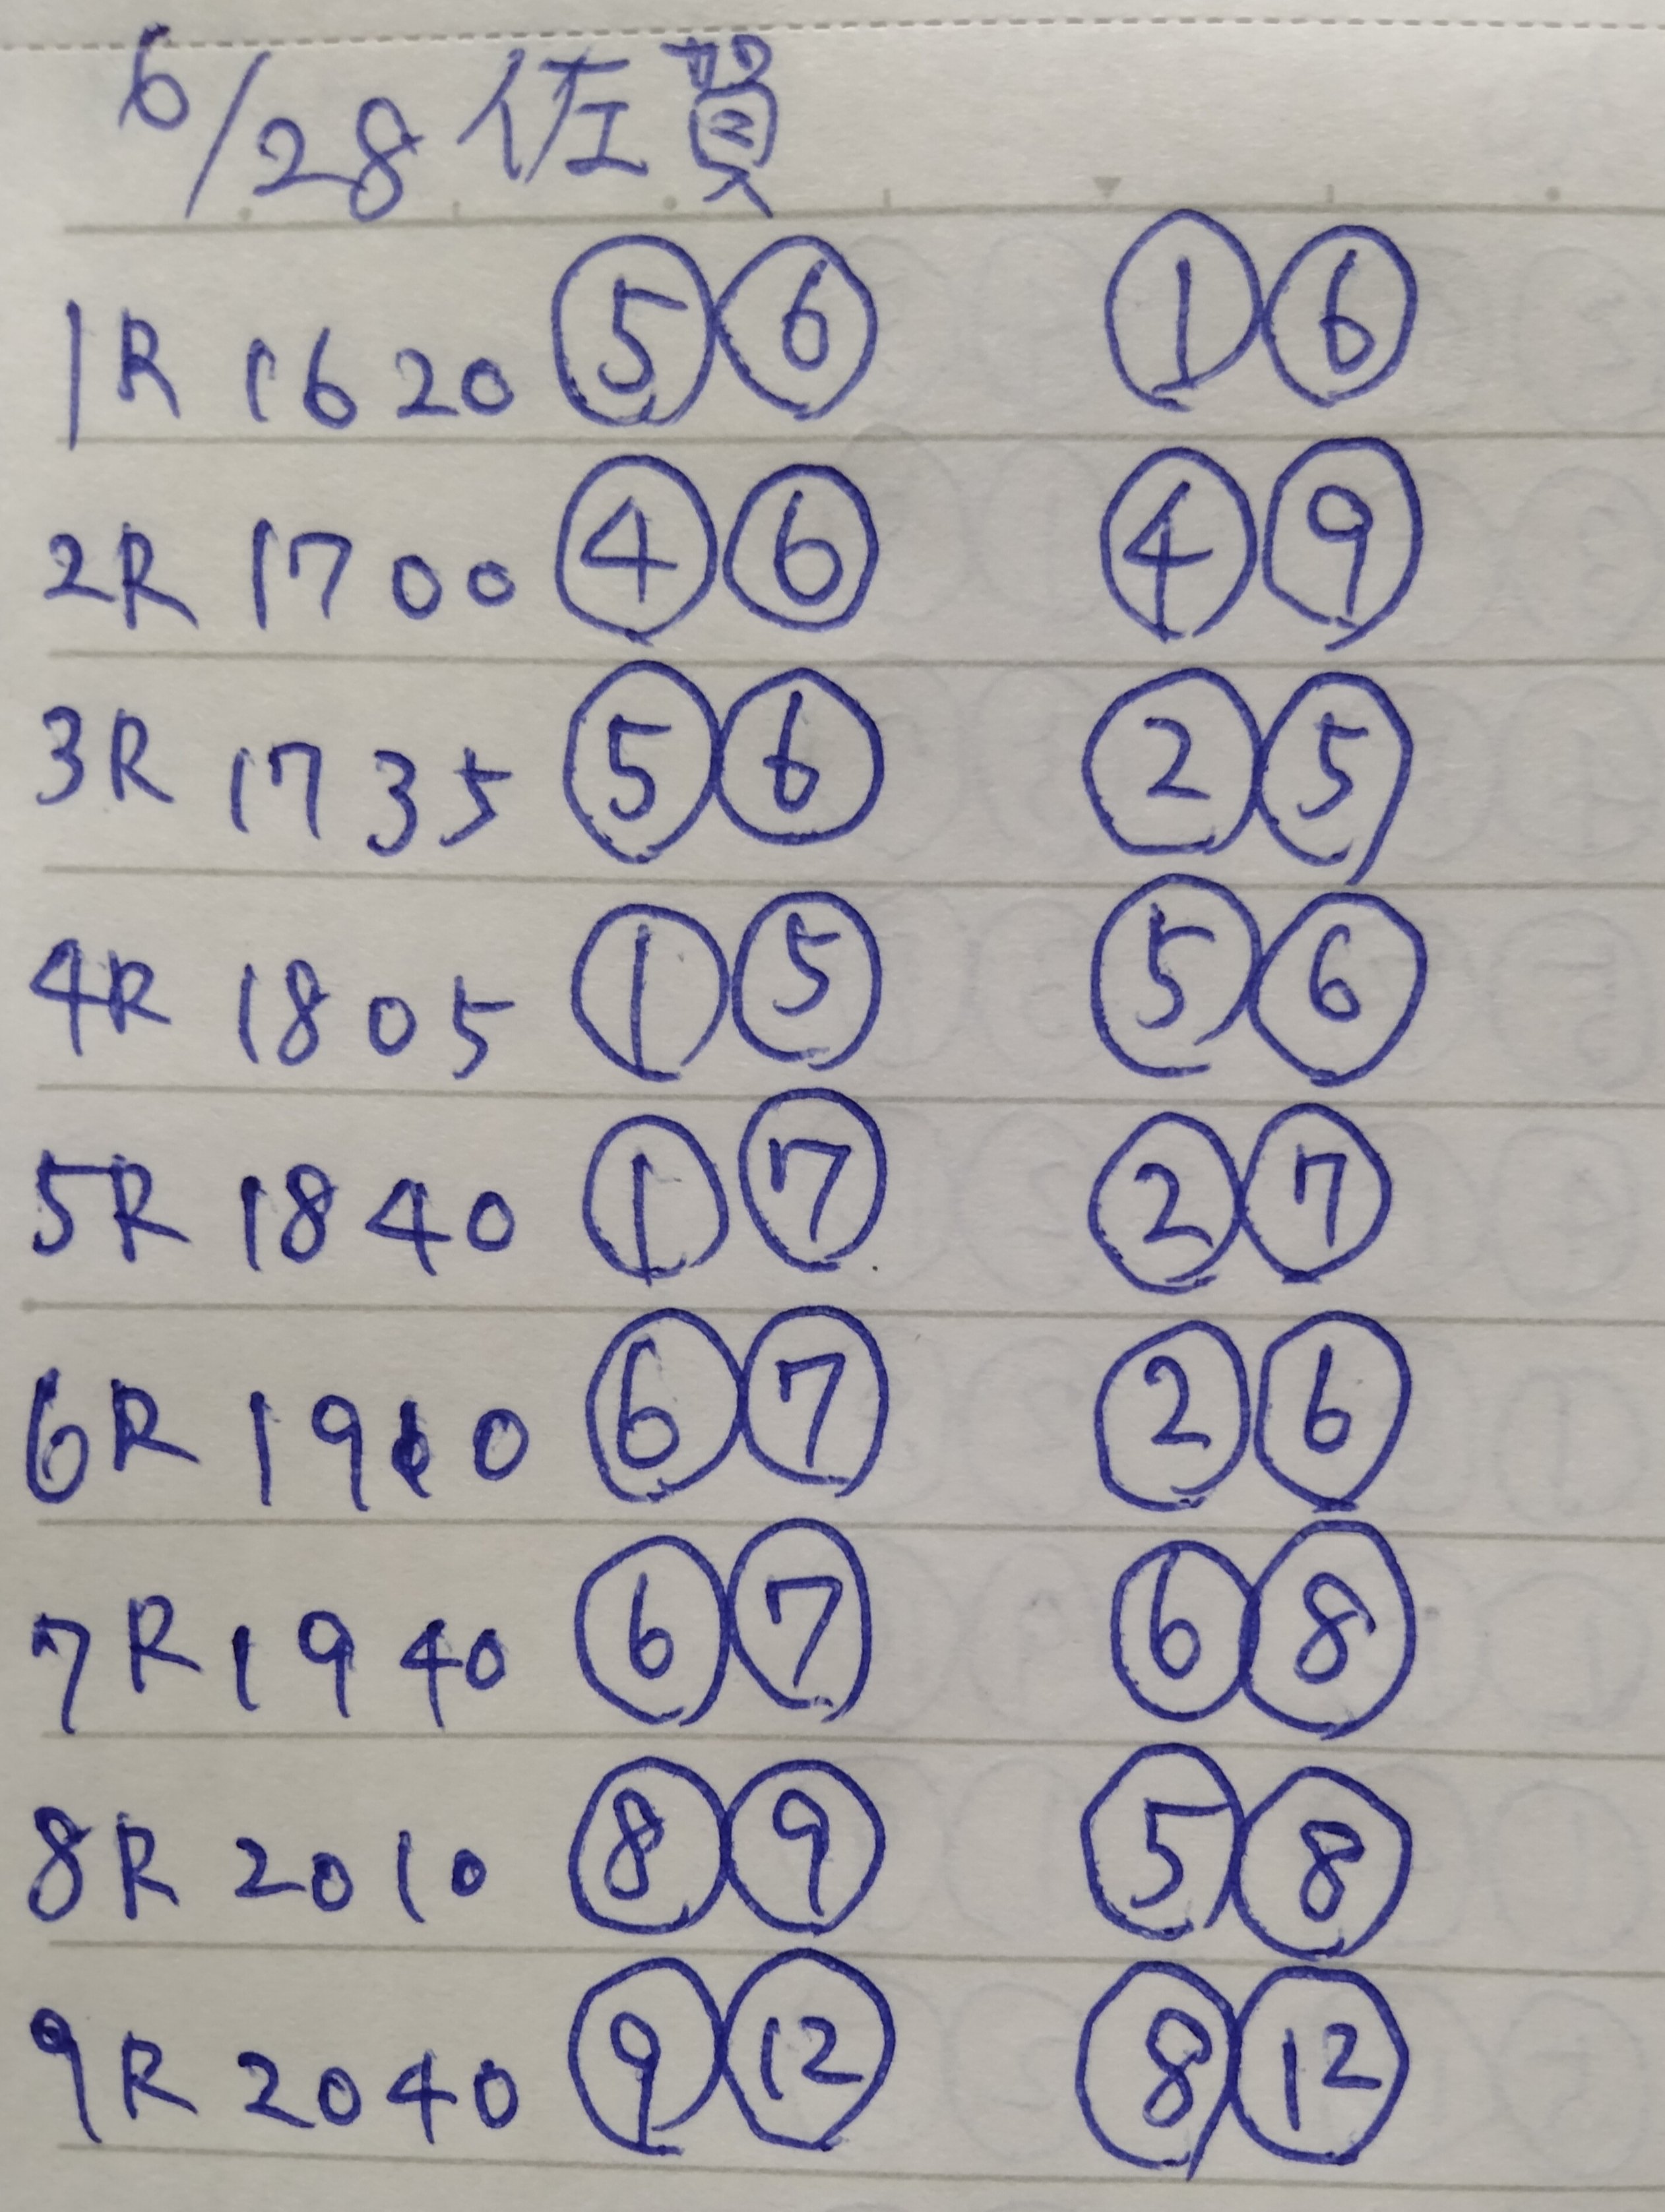 6/28 佐賀
1R 16 20 ⑤⑥ ①⑥
2R 17 00 ④⑥ ④⑨
3R 17 35 ⑤⑥ ②⑤
4R 18 05 ①⑤ ⑤⑥
5R 18 40 ①⑦ ②⑦
6R 19 10 ⑥⑦ ②⑥
7R 19 40 ⑥⑦ ⑥⑧
8R 20 10 ⑧⑨ ⑤⑧
9R 20 40 ⑨⑫ ⑧⑫